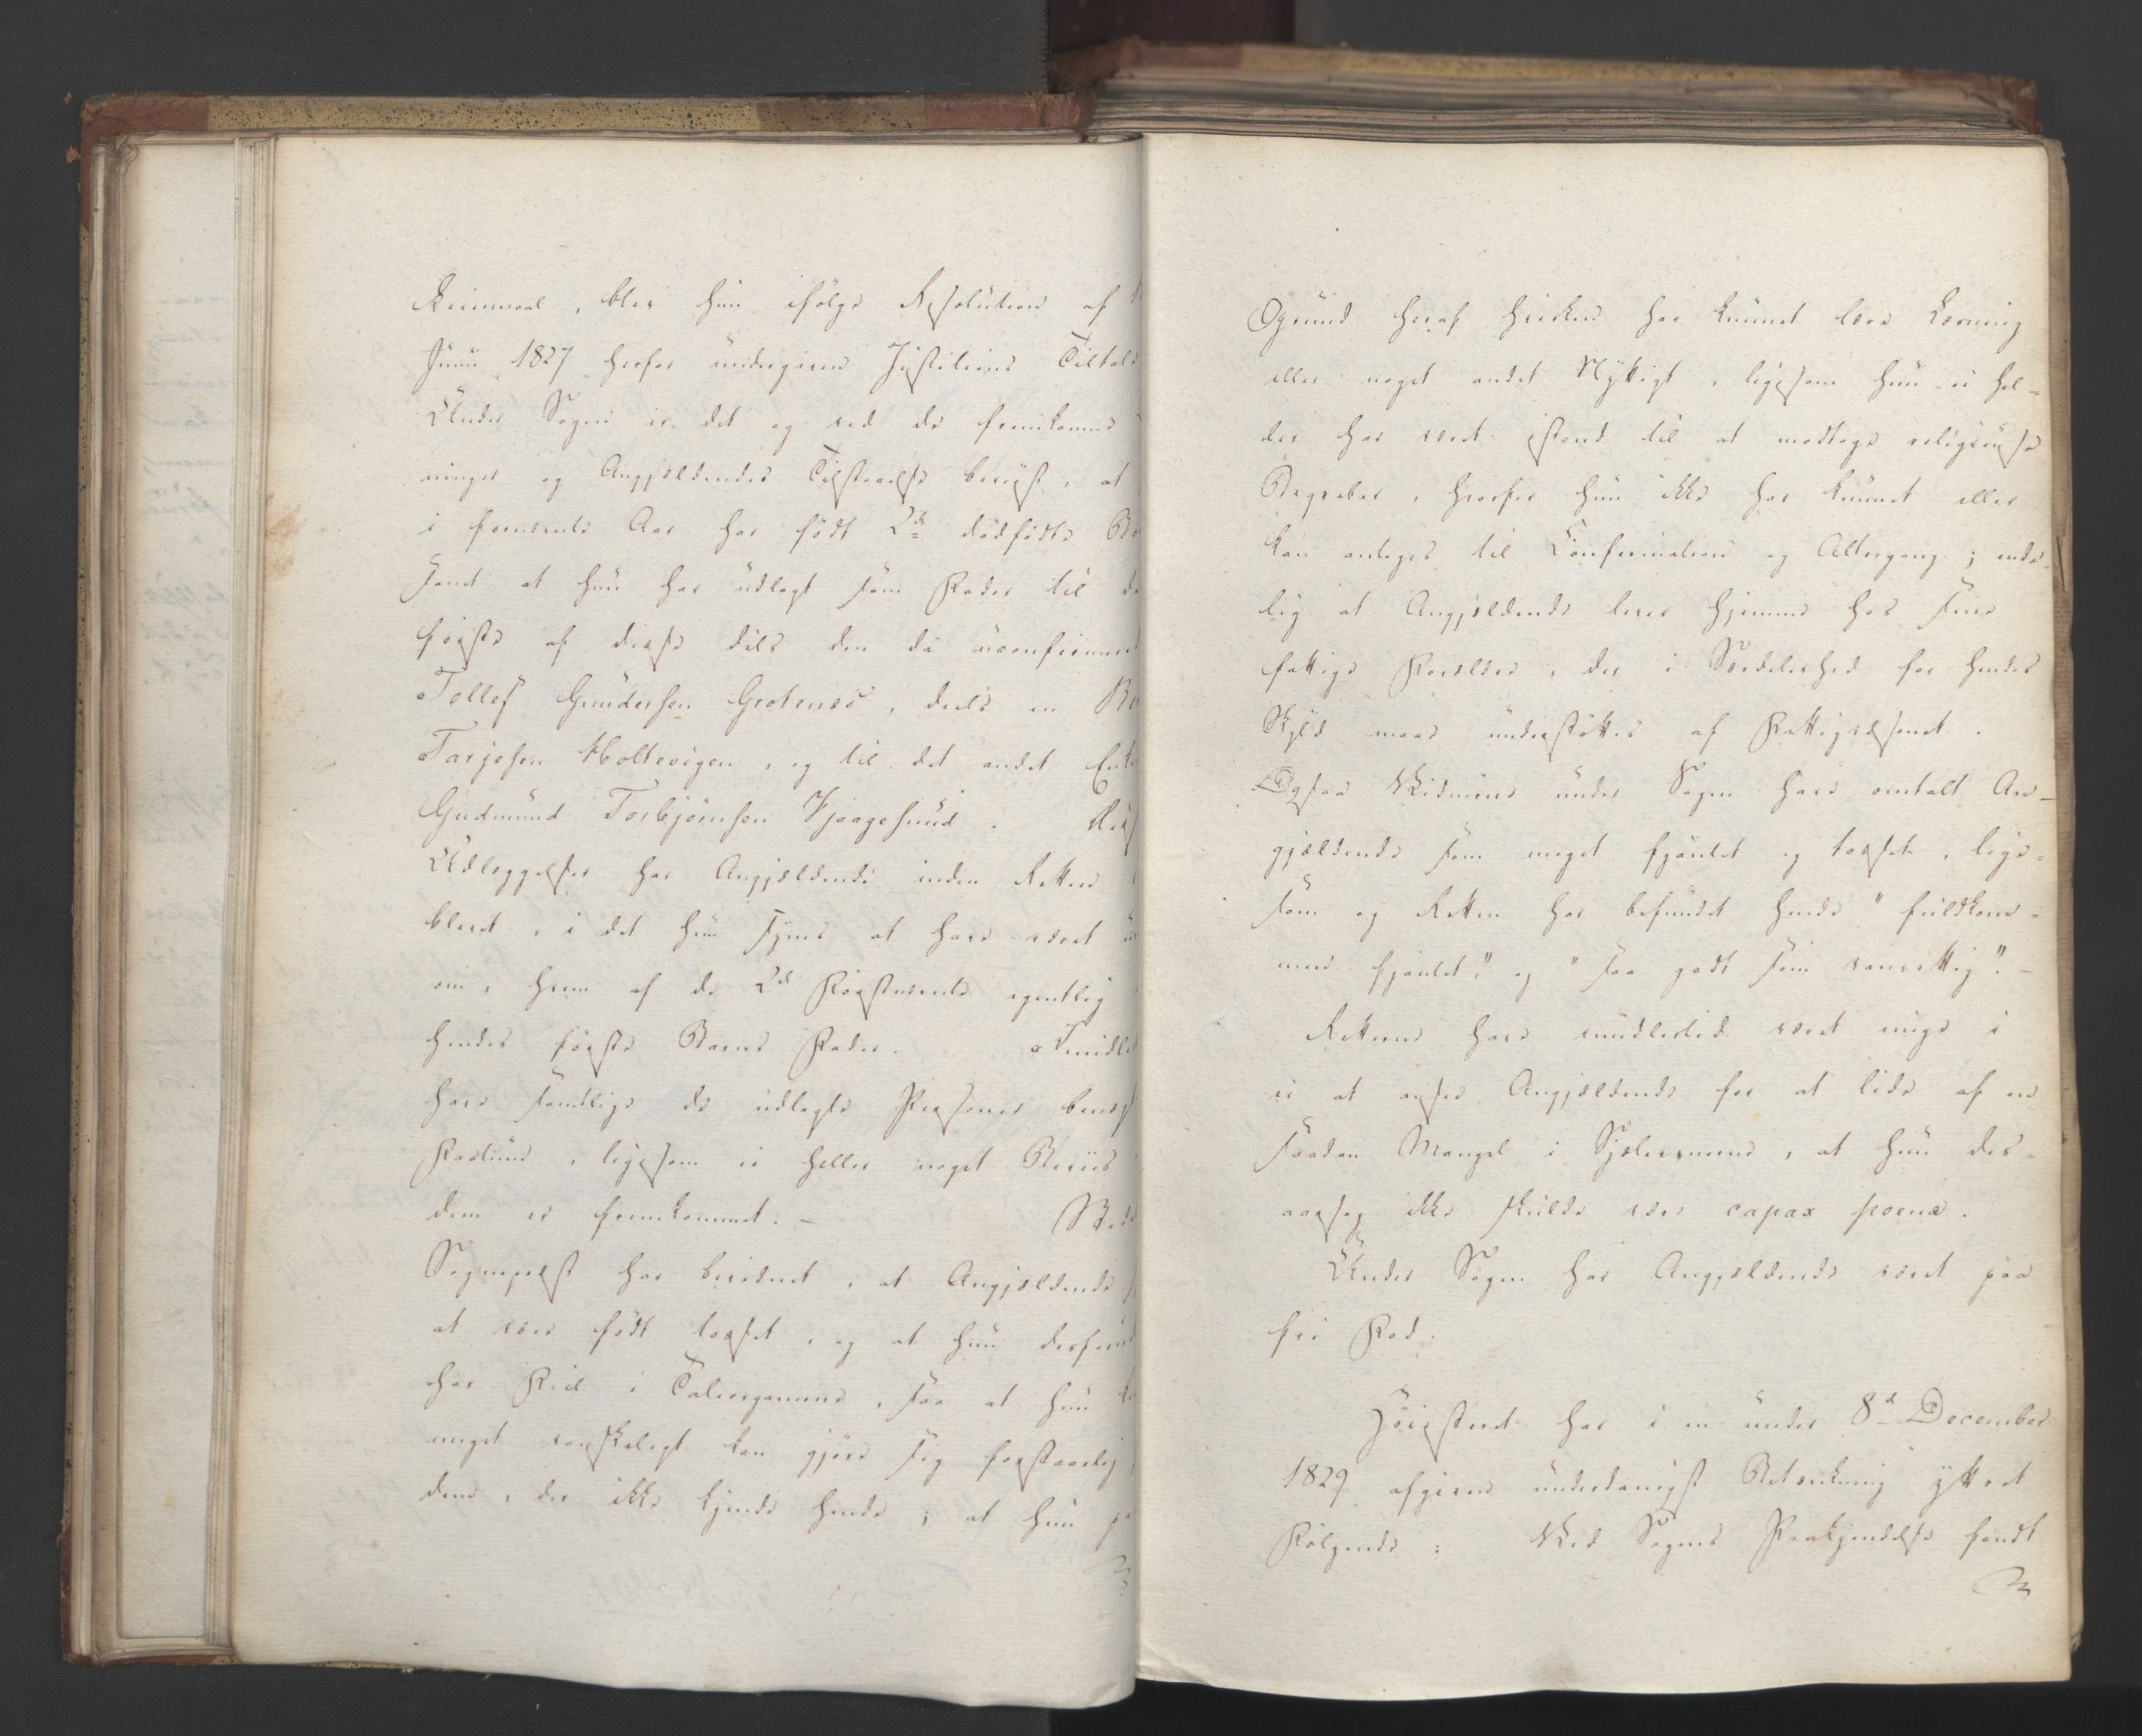 Leiermaal, blev hun ifølge Resolution af
Junii 1827 herfor undergiven Justitiens Tiltale
Under Sagen er det og ved de fremkomne
ninger og Angjeldendes Tilstaaelse beviist, at
i forrævnte Aar har født 2de dødfødte
samt at hun har udlagt som Fader til
første af disse dels den da uconfirmered
Tellef Gundersen Grotenæs, deels en
Tarjesen Holtevigen, og til det andet Enke
Gudmund Torbjørnsen Kjaagesund.
Udlæggelser har Angjeldende inden Retten
blevet, i det hun synes at have været
om, hvem af de 2de Førstnævnte egentlig
hendes første Barns Fader. Imidler
have samtlige de udlagte Personer benæg
Faslund, ligesom ei heller noget Beviis
dem er fremkommet. —
Sognepræst har bevidnet, at Angjeldende
at være født tosset, og at hun desforud
har Feil i Taleorganerne, saa at hun
meget vanskeligt kan gjøre sig forstaaelig
dem, der ikke kjende hende; at hun
Ogrund heraf hverken har kunnet lære Læsning
eller noget andet Nyttigt, ligesom hun ei hel=
ler har været istand til at modtage religieuse
Begreber, hvorfor hun ikke har kunnet eller
kan antages til Confirmation og Altergang; ende
lig at Angjeldende lever hjemme hos sine
fattige Forældre, der i Særdeleshed for hendes
Skyld maae understøttes af Fattigvæsenet.
Ogsaa Vidnerne under Sagen have omtalt An=
gjældende som meget fjantet og tosset, lige=
som og Retten har befundet hende "fuldkom=
men fjantet" og "saa godt som vanvittig". —
Retterne have imidlertid været enige i
ei at ansee Angjeldende for at lide af en
saadan Mangel i Sjeleevnerne, at hun des=
aarsag ikke skulde være capax poenæ.
Under Sagen har Angjeldende været paa
fri Fod.
Høiesteret har i en under 8de December
1829 afgiven underdanigst Betænkning yttret
Følgende: Ved Sagens Paakjendelse fandt